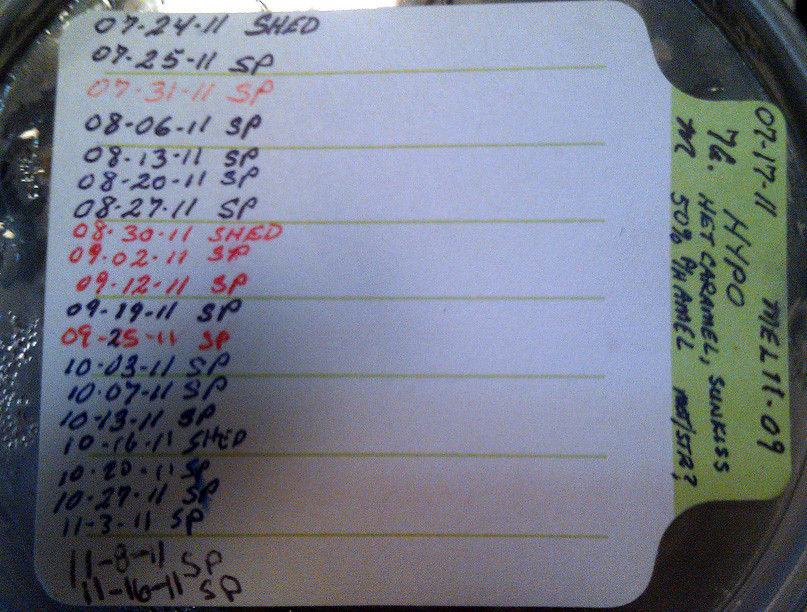 07-24-11 SHED
07-25-11 SP
07-31-11 SP
08-06-11 SP
08-13-11 SP
08-20-11 SP
08-27-11 SP
08-30-11 SHED
09-02-11 SP
09-12-11 SP
09-19-11 SP
09-25-11 SP
10-03-11 SP
10-07-11 SP
10-13-11 SP
10-16-11 SHED
10-20-11 SP
10-27-11 SP
11-3-11 SP
11-8-11 SP
11-16-11 SP
07-17-11 MEL11-09
HYPO
HET CARAMEL, SUNKISS
50% P/H AMEL